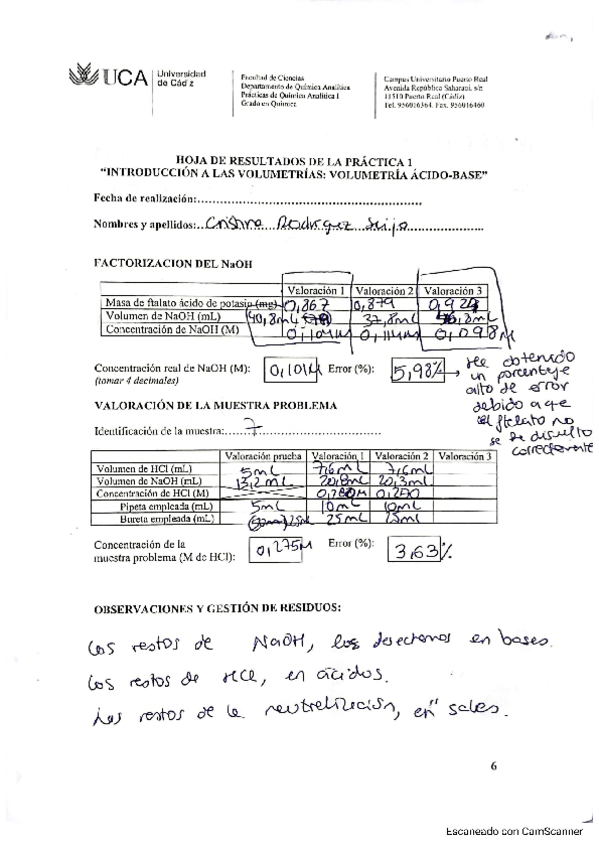 UCA Universidad de Cádiz
Facultad de Ciencias
Departamento de Química Analítica
Prácticas de Química Analítica I
Grado en Química
Campus Universitario Puerto Real
Avenida República Saharaui, s/n
11510 Puerto Real (Cádiz)
Tel. 956016364. Fax. 956016460
HOJA DE RESULTADOS DE LA PRÁCTICA 1
“INTRODUCCIÓN A LAS VOLUMETRÍAS: VOLUMETRÍA ÁCIDO-BASE”
Fecha de realización:
Nombres y apellidos: Cristina Rodríguez
FACTORIZACION DEL NaOH
Valoración 1 Valoración 2 Valoración 3
Masa de ftalato ácido de potasio (mg) 0,867 0,879
Volumen de NaOH (mL) 40,8mL 37,8mL
Concentración de NaOH (M) 0,104M 0,114M 0,098M
Concentración real de NaOH (M): 0,101M Error (%): 5,98%
(tomar 4 decimales)
→ He obtenido
un porcentaje
alto de error
debido a que
el ftalato no
se ha disuelto
correctamente
VALORACIÓN DE LA MUESTRA PROBLEMA
Identificación de la muestra: 7
Valoración prueba Valoración 1 Valoración 2 Valoración 3
Volumen de HCl (mL) 5mL 7,6mL 7,6mL
Volumen de NaOH (mL) 13,2mL 20,8mL 20,3mL
Concentración de HCl (M) 0,280M 0,270
Pipeta empleada (mL) 5mL 10mL 10mL
Bureta empleada (mL) 25mL 25mL 25mL
Concentración de la
muestra problema (M de HCl): 0,275M Error (%): 3,63%
OBSERVACIONES Y GESTIÓN DE RESIDUOS:
Los restos de NaOH, los desechamos en bases.
Los restos de HCl, en ácidos.
Los restos de la neutralización, en "sales.
6
Escaneado con CamScanner